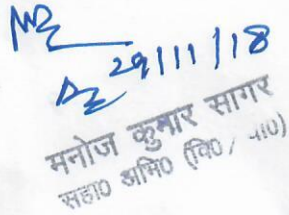 29/11/18
मनोज कुमार सागर
सहा० अभि० (वि० / या०)